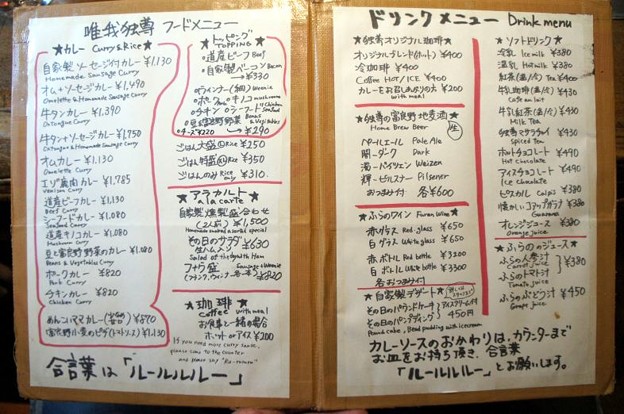 唯我独尊 フードメニュー
★カレー Curry & Rice★
自家製ソーセージ付カレー ¥1,130
Homemade Sausage Curry
オム+ソーセージカレー ¥1,490
Omelette & Homemade Sausage Curry
牛タンカレー ¥1,390
牛タン+ソーセージカレー ¥1,750
オムカレー ¥1,130
Omelette Curry
エゾ鹿肉カレー ¥1,785
Venison Curry
道産ビーフカレー ¥1,130
Beef Curry
シーフードカレー ¥1,080
Seafood Curry
道産キノコカレー ¥1,080
Mushroom Curry
豆と富良野野菜のカレー ¥1,080
Beans & Vegetables Curry
ポークカレー ¥820
Pork Curry
チキンカレー ¥820
Chicken Curry
¥870
¥1,130
合言葉は「ルールルルー」
★トッピング★
TOPPING
・道産ビーフ Beef
・自家製ベーコン Bacon
→¥330
・チーズ ¥220
→¥290
ごはん大盛 ¥250
ごはん特盛 ¥350
ごはんのみ Rice only ¥310
★アラカルト★
A la carte
自家製燻製盛合わせ
(2人前) ¥1,500
その日のサラダ ¥630
(生ハムのせ)
¥820
★珈琲★
Coffee with meal
お食事と一緒の場合
ホット or アイス ¥200
If you need more curry sauce,
please come to the counter
and please say
ドリンクメニュー Drink menu
★独尊オリジナル珈琲★
オリジナルブレンド(ホット) ¥400
冷珈琲 ¥400
Coffee HOT/ICE ¥400
カレーをお召しあがりの方 ¥200
with meal
★独尊の富良野地麦酒★
生
Home Brew Beer
ペールエール Pale Ale
闇-ダーク Dark
濁-バイツェン Weizen
輝-ピルスナー Pilsener
おつまみ付 各¥600
★ふらのワイン Furano Wine★
赤グラス Red glass ¥650
白グラス White glass ¥650
赤ボトル Red bottle ¥3200
白ボトル White bottle ¥3300
各おつまみ付
★自家製デザート★
その日のパウンドケーキ
その日のパンプディング
アイスクリーム付
450円
Pound cake, Bread pudding with icecream
★ソフトドリンク★
冷乳 Ice milk ¥380
温乳 Hot milk ¥380
紅茶(温/冷) Tea ¥400
牛乳珈琲(温/冷) ¥430
Cafe au lait
牛乳紅茶(温/冷) ¥430
Milk Tea
独尊マサラチャイ ¥490
Spiced Tea
ホットチョコレート ¥490
Hot chocolate
アイスチョコレート ¥490
Ice chocolate
ピスカル Calpis ¥380
懐かしコアップガラナ ¥380
Guarana
オレンジジュース ¥380
Orange juice
★ふらののジュース★
ふらの人参汁
Carrot juice
ふらのトマト汁
Tomato juice
¥380
ふらのぶどう汁 ¥450
Grape juice
カレーソースのおかわりは、カウンターまで
お皿をお持ち頂き、合言葉
「ルールルルー」とお願いします。